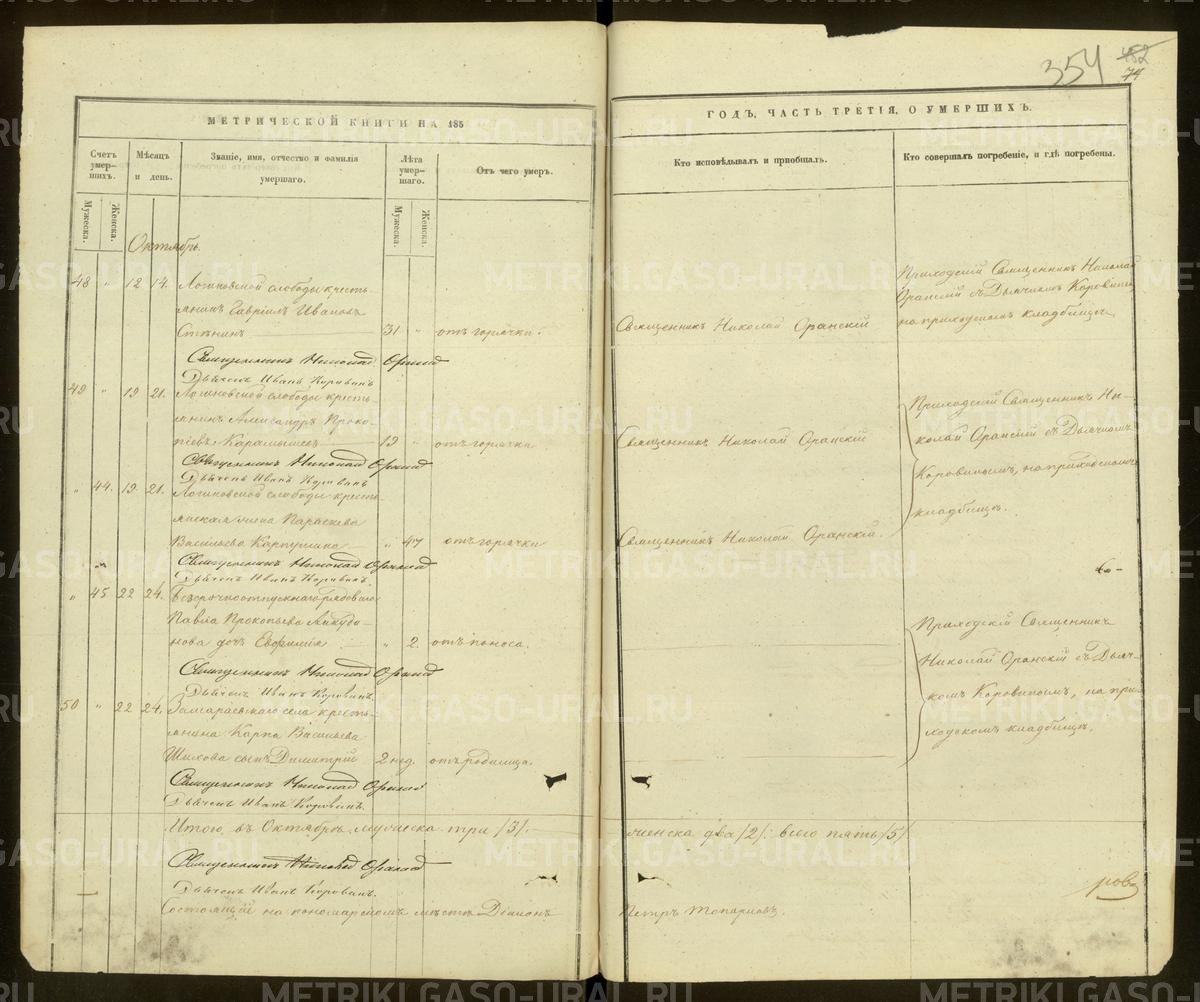 354
452
74
МЕТРИЧЕСКОЙ КНИГИ НА 185
ГОДЪ, ЧАСТЬ ТРЕТІЯ, О УМЕРШИХЪ.
Счетъ умер-шихъ.
Мѣсяцъ и день.
Званіе, имя, отчество и фамилія умершаго.
Лѣта умер-шаго.
Отъ чего умеръ.
Кто исповѣдывалъ и пріобщалъ.
Кто совершалъ погребеніе, и гдѣ погребены.
Мужеска.
Женска.
Мужеска.
Женска.
Октябрь.
48 " 12 14. Логиновской слободы кресть-
янинъ Гавріилъ Ивановъ
31 " отъ горячки.
Священникъ Николай Оранскій
Приходскій Священникъ Николай
Оранскій съ Дьячкомъ Коровинымъ
на приходскомъ кладбищѣ.
Священникъ Николай
Дьячекъ Иванъ Коровинъ
49 " 19 21. Логиновской слободы кресть-
янинъ Александръ Проко-
пьевъ 19 " отъ горячки
Священникъ Николай Оранскій
Приходскій Священникъ Ни-
колай Оранскій съ Дьячкомъ
Коровинымъ, на приходскомъ
кладбищѣ.
Священникъ Николай
Дьячекъ Иванъ Коровинъ
" 44. 19 21. Логиновской слободы кресть-
янская жена Параскева
Васильева 47 отъ горячки
Священникъ Николай Оранскій.
Священникъ Николай
Дьячекъ Иванъ Коровинъ.
" 45 22 24. Безсрочноотпускнаго рядоваго
Павла Прокопьева
дочь Евфимія " 2. отъ поноса.
Приходскій Священникъ
Николай Оранскій съ Дьяч-
комъ Коровинымъ, на при-
ходскомъ кладбищѣ.
Священникъ Николай
Дьячекъ Иванъ Коровинъ.
50 " 22 24. Замараевскаго села кресть-
янина Карпа Васильева
Шихова сынъ Димитрій 2 нед. отъ родимца.
Священникъ Николай
Дьячекъ Иванъ Коровинъ.
Итого въ Октябрѣ мужеска три /3/. женска два /2/. всего пять /5/.
Священникъ Николай
Дьячекъ Иванъ Коровинъ.
Состоящій на пономарскомъ мѣстѣ Діаконъ Петръ Топорковъ.
METRIKI.GASO-URAL.RU